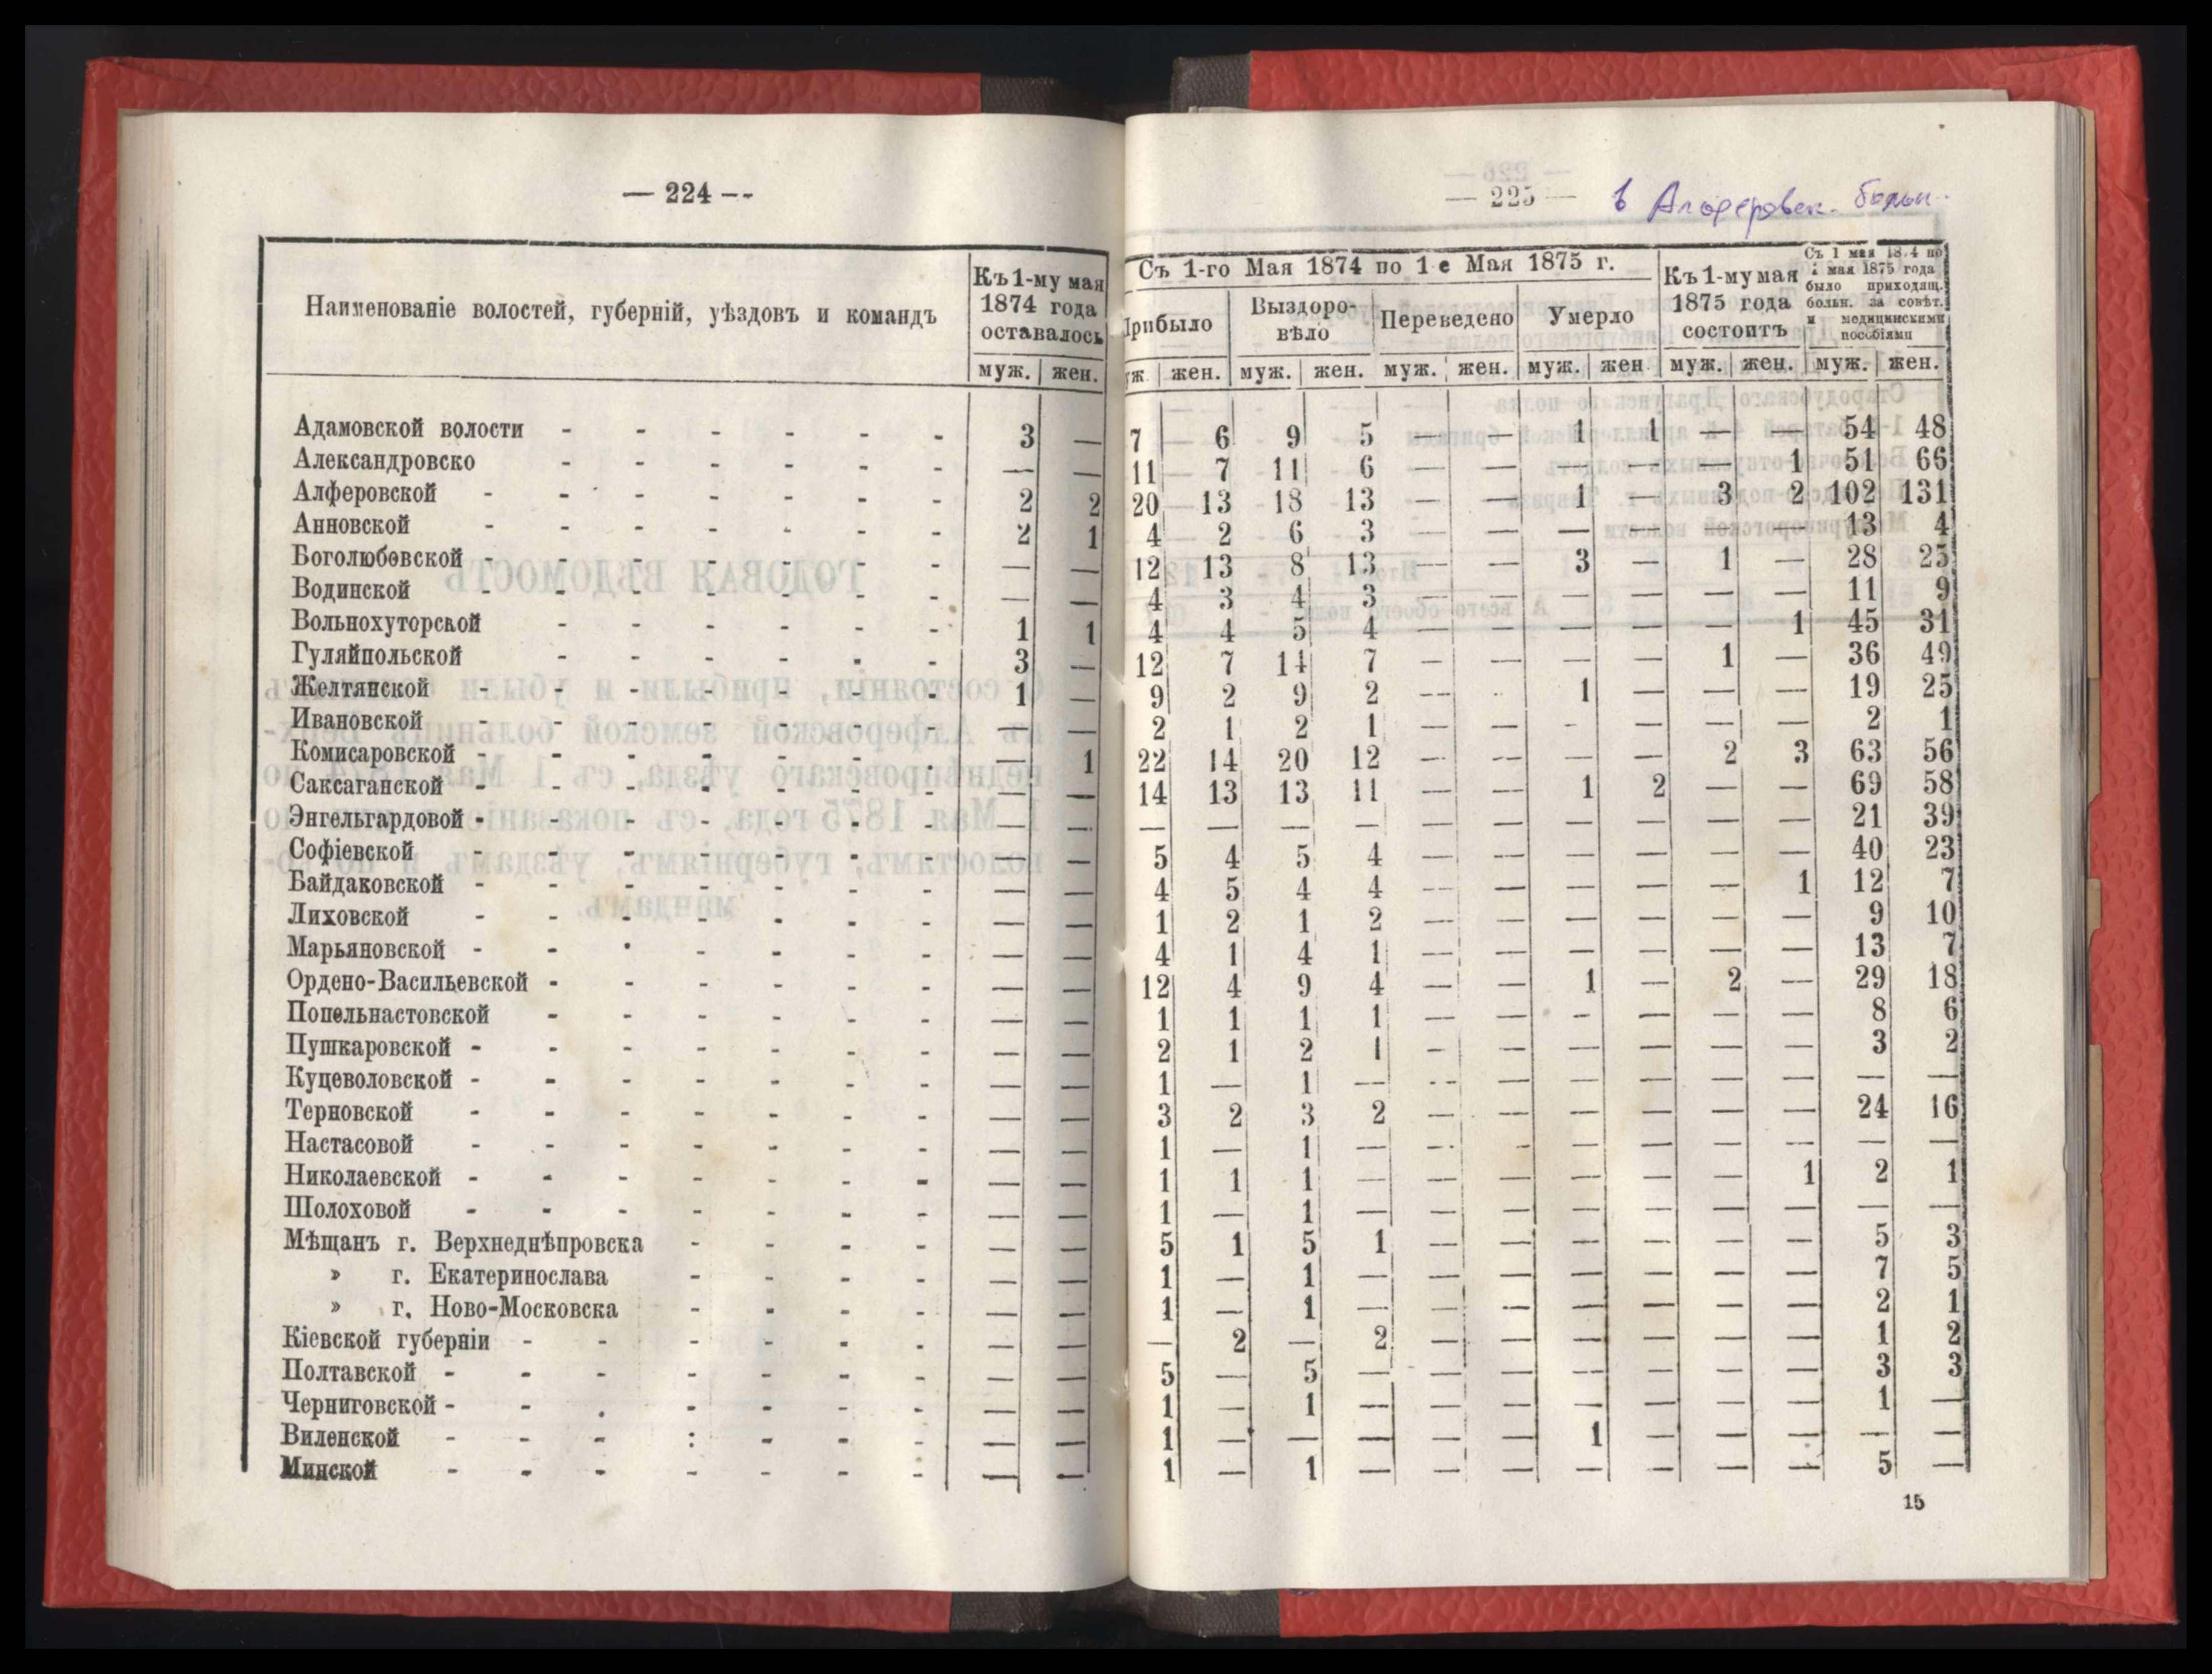 — 224 —
Наименованіе волостей, губерній, уѣздовъ и командъ
Къ 1-му мая 1874 года оставалось
муж. жен.
Адамовской волости 3 —
Александровско — —
Алферовской 2 2
Анновской 2 1
Боголюбовской — —
Водинской — —
Вольнохуторской 1 1
Гуляйпольской 3 —
Желтянской 1 —
Ивановской — —
Комисаровской — 1
Саксаганской — —
Энгельгардовой — —
Софіевской — —
Байдаковской — —
Лиховской — —
Марьяновской — —
Ордено-Васильевской — —
Попельнастовской — —
Пушкаровской — —
Куцеволовской — —
Терновской — —
Настасовой — —
Николаевской — —
Шолоховой — —
Мѣщанъ г. Верхнеднѣпровска — —
» г. Екатеринослава — —
» г. Ново-Московска — —
Кіевской губерніи — —
Полтавской — —
Черниговской — —
Виленской — —
Минской — —
— 225 —
Съ 1-го Мая 1874 по 1 е Мая 1875 г.
Къ 1-му мая 1875 года состоитъ
Съ 1 мая 18.4 по 1 мая 1875 года было приходящ. больн. за совѣт. и медицинскими пособіями
Прибыло Выздоро-вѣло Переведено Умерло
уж. жен. муж. жен. муж. жен. муж. жен муж. жен. муж. жен.
7 6 9 5 — — 1 1 — — 54 48
11 7 11 6 — — — — — 1 51 66
20 13 18 13 — — 1 — 3 2 102 131
4 2 6 3 — — — — — — 13 4
12 13 8 13 — — 3 — 1 — 28 25
4 3 4 3 — — — — — — 11 9
4 4 5 4 — — — — — 1 45 31
12 7 14 7 — — — — 1 — 36 49
9 2 9 2 — — 1 — — — 19 25
2 1 2 1 — — — — — — 2 1
22 14 20 12 — — — — 2 3 63 56
14 13 13 11 — — 1 2 — — 69 58
— — — — — — — — — — 21 39
5 4 5 4 — — — — — — 40 23
4 5 4 4 — — — — — 1 12 7
1 2 1 2 — — — — — — 9 10
4 1 4 1 — — — — — — 13 7
12 4 9 4 — — 1 — 2 — 29 18
1 1 1 1 — — — — — — 8 6
2 1 2 1 — — — — — — 3 2
1 — 1 — — — — — — — — —
3 2 3 2 — — — — — — 24 16
1 — 1 — — — — — — — — —
1 1 1 — — — — — — 1 2 1
1 — 1 — — — — — — — — —
5 1 5 1 — — — — — — 5 3
1 — 1 — — — — — — — 7 5
1 — 1 — — — — — — — 2 1
— 2 — 2 — — — — — — 1 2
5 — 5 — — — — — — — 3 3
1 — 1 — — — — — — — 1 —
1 — — — — — 1 — — — — —
1 — 1 — — — — — — — 5 —
15